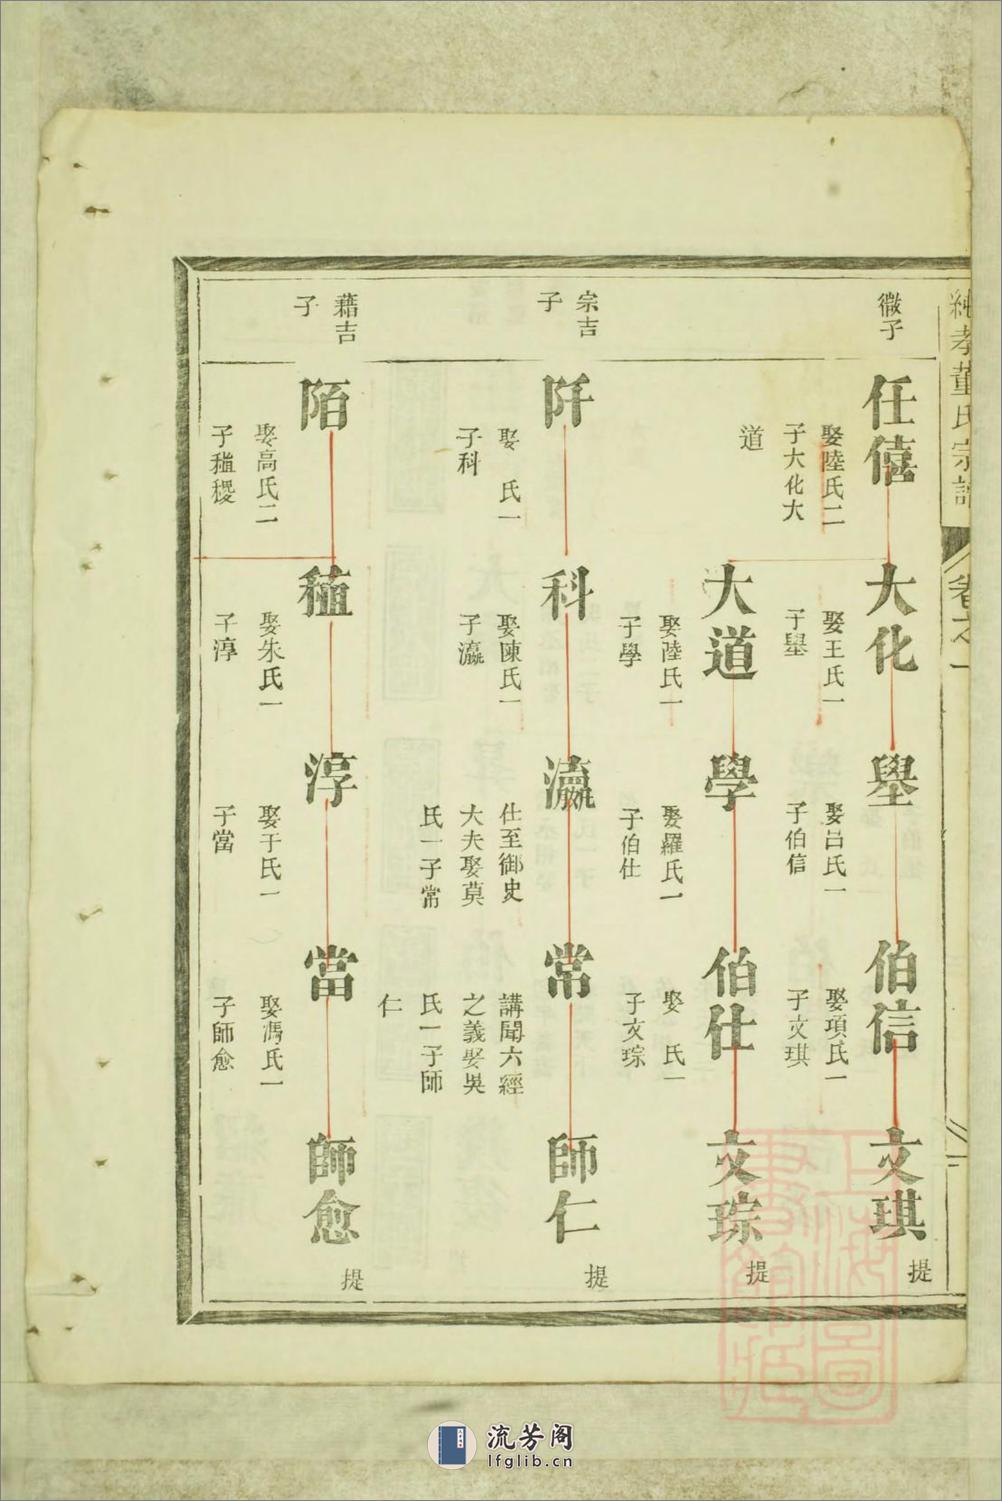 純孝董氏宗譜
卷之一
徵子
任僖
娶陸氏二
子大化大
道
大化
娶王氏一
子壆
壆
娶呂氏一
子伯信
伯信
娶項氏一
子文琪
文琪
提
大道
娶陸氏一
子學
學
娶羅氏一
子伯仕
伯仕
娶 氏一
子文琮
文琮
提
宗吉
子
阡
娶 氏一
子科
科
娶陳氏一
子瀛
瀛
仕至御史
大夫娶莫
氏一子常
常
講聞六經
之義娶吳
氏一子師
仁
師仁
提
藉吉
子
陌
娶高氏二
子稙稷
稙
娶朱氏一
子淳
淳
娶于氏一
子當
當
娶馮氏一
子師愈
師愈
提
上海圖書館藏
流芳阁
lfglib.cn